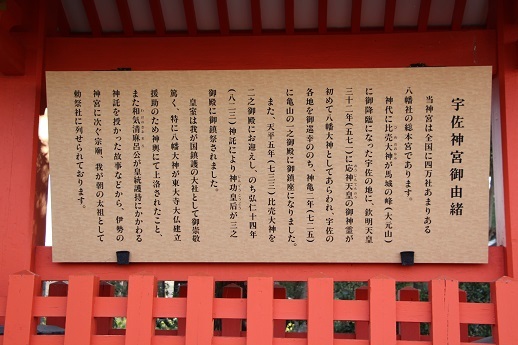 宇佐神宮御由緒
当神宮は全国に四万社あまりある
八幡社の総本宮であります。
神代に比売大神が馬城の峰（大元山）
に御降臨になった宇佐の地に、欽明天皇
三十二年（五七一）に応神天皇の御神霊が
初めて八幡大神としてあらわれ、宇佐の
各地を御巡幸ののち、神亀二年（七二五）
に亀山の一之御殿に御鎮座になりました。
また、天平五年（七三三）比売大神を
二之御殿にお迎えし、のち弘仁十四年
（八二三）神託により神功皇后が三之
御殿に御鎮祭されました。
皇室は我が国鎮護の大社として御崇敬
篤く、特に八幡大神が東大寺大仏建立
援助のため神輿にて上洛されたこと、
また和気清麻呂公が皇統護持にかかわる
神託を授かった故事などから、伊勢の
神宮に次ぐ宗廟、我が朝の太祖として
勅祭社に列せられております。